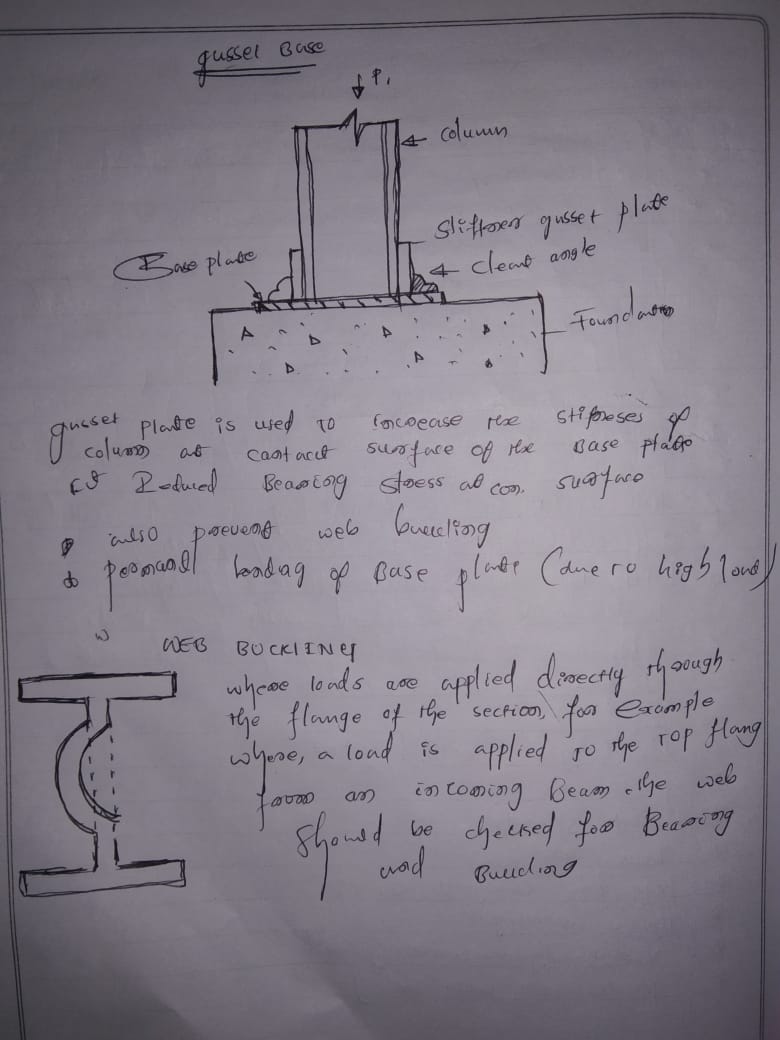 gusset Base
P1
column
Stiffner gusset plate
cleat angle
Base plate
Foundation
gusset plate is used TO increase the stifneses of
column at contact surface of the Base plate
Reduced Bearing stress at con. surface
also prevent web buckling
bending of Base plate (due to high load)
w
WEB BUCKLING
where loads are applied directly through
the flange of the section, for Example
where, a load is applied to the top flang
from an incoming Beam. the web
should be checked for Bearing
and Buckling